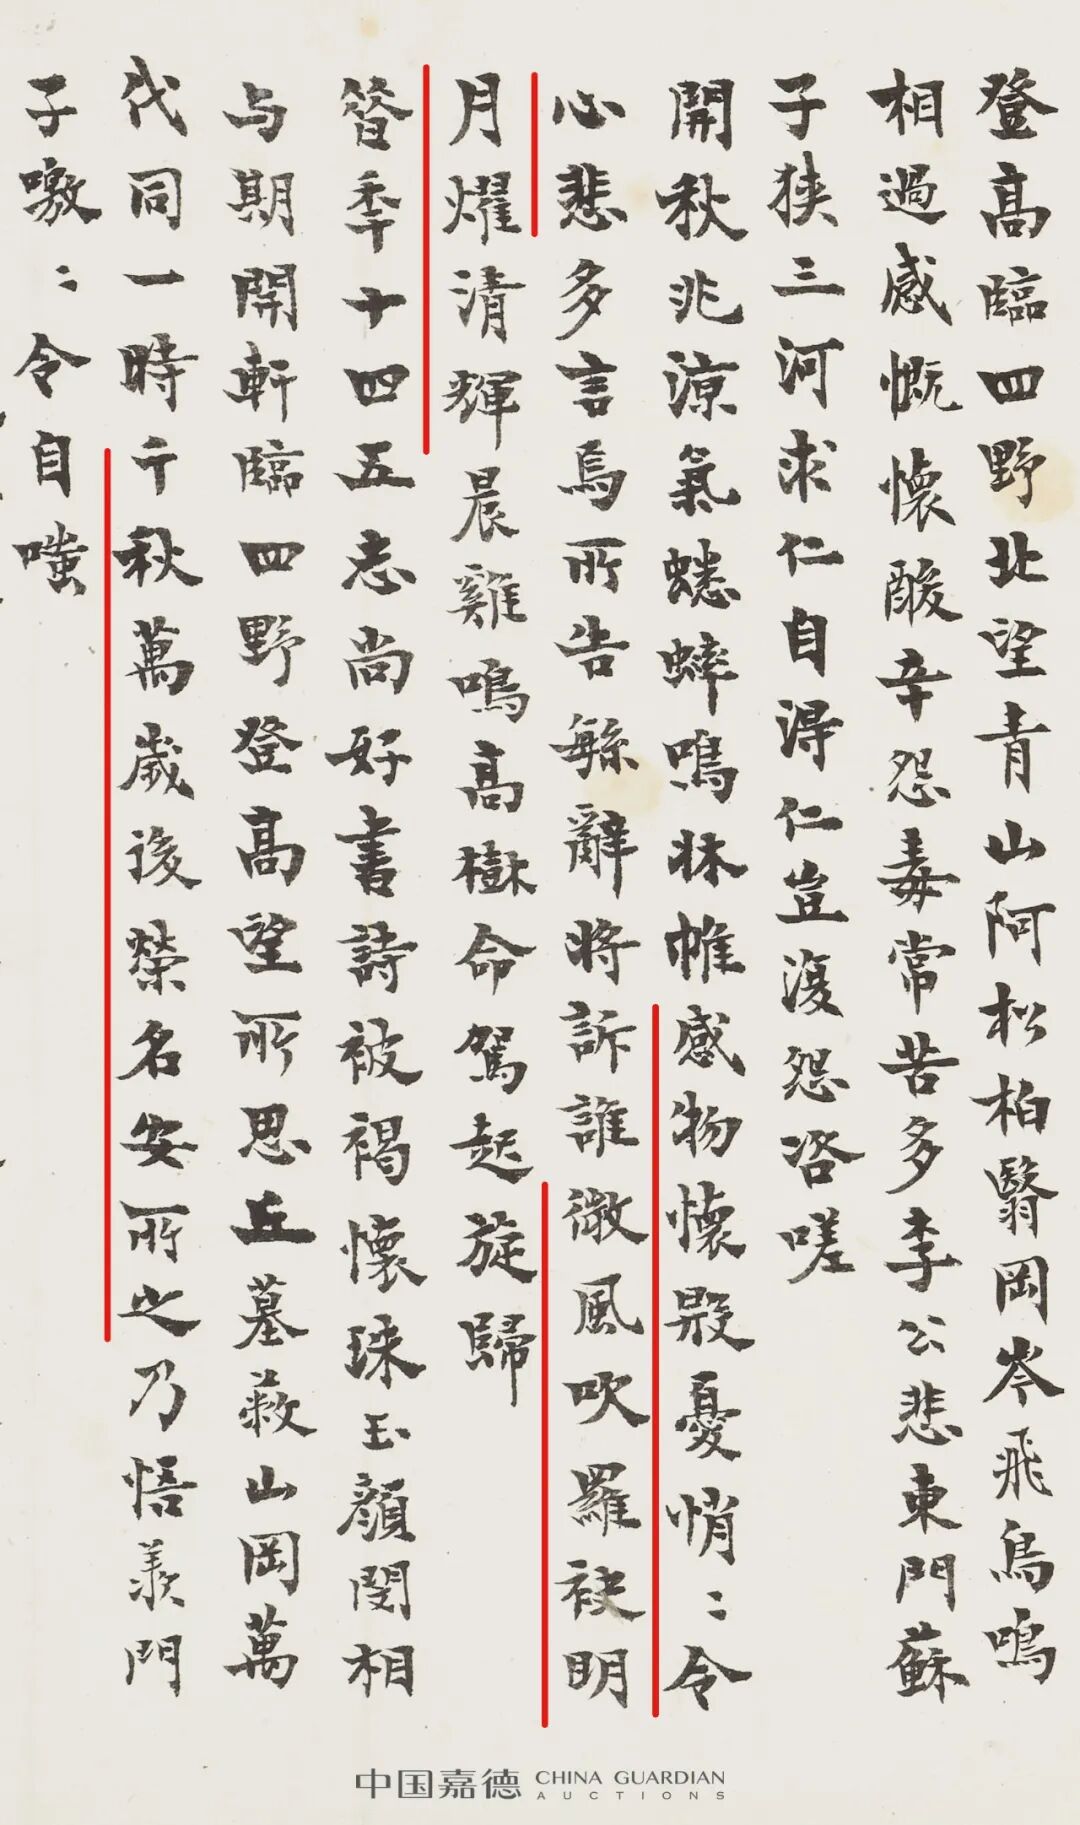 登高臨四野北望青山阿松柏翳岡岑飛鳥鳴
相過感慨懷酸辛怨毒常苦多李公悲東門蘇
子狹三河求仁自得仁豈復怨咨嗟
開秋兆涼氣蟋蟀鳴牀帷感物懷殷憂悄〻令
心悲多言焉所告繇辭將訴誰微風吹羅袂明
月燿清輝晨雞鳴高樹命駕起旋歸
昝秊十四五志尚好書詩被褐懷珠玉顏閔相
与期開軒臨四野登高望所思丘墓蔽山岡萬
代同一時千秋萬歲後榮名安所之乃悟羨門
子噭〻令自嗤
中国嘉德 CHINA GUARDIAN
AUCTIONS